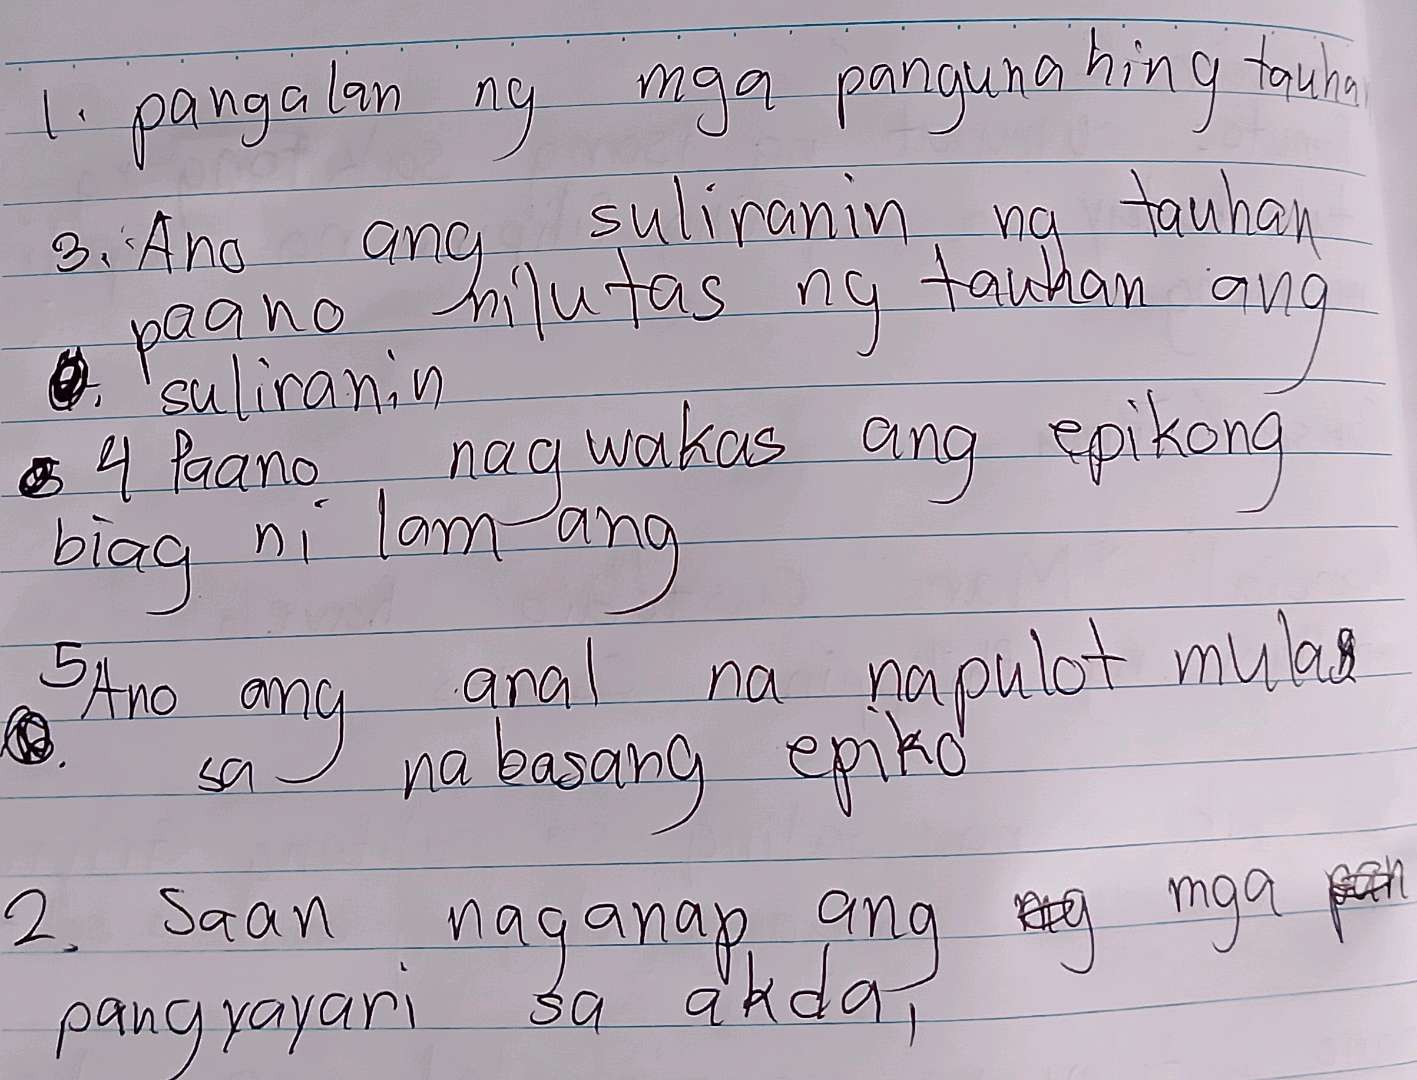 1. pangalan ng mga pangunahing tauha
3. Ano ang suliranin ng tauhan
paano nilutas ng tauhan ang
suliranin
4 Paano nagwakas ang epikong
biag ni lam-ang
5 Ano ang aral na napulot mula
sa nabasang epiko
2. Saan naganap ang mga
pangyayari sa akda,